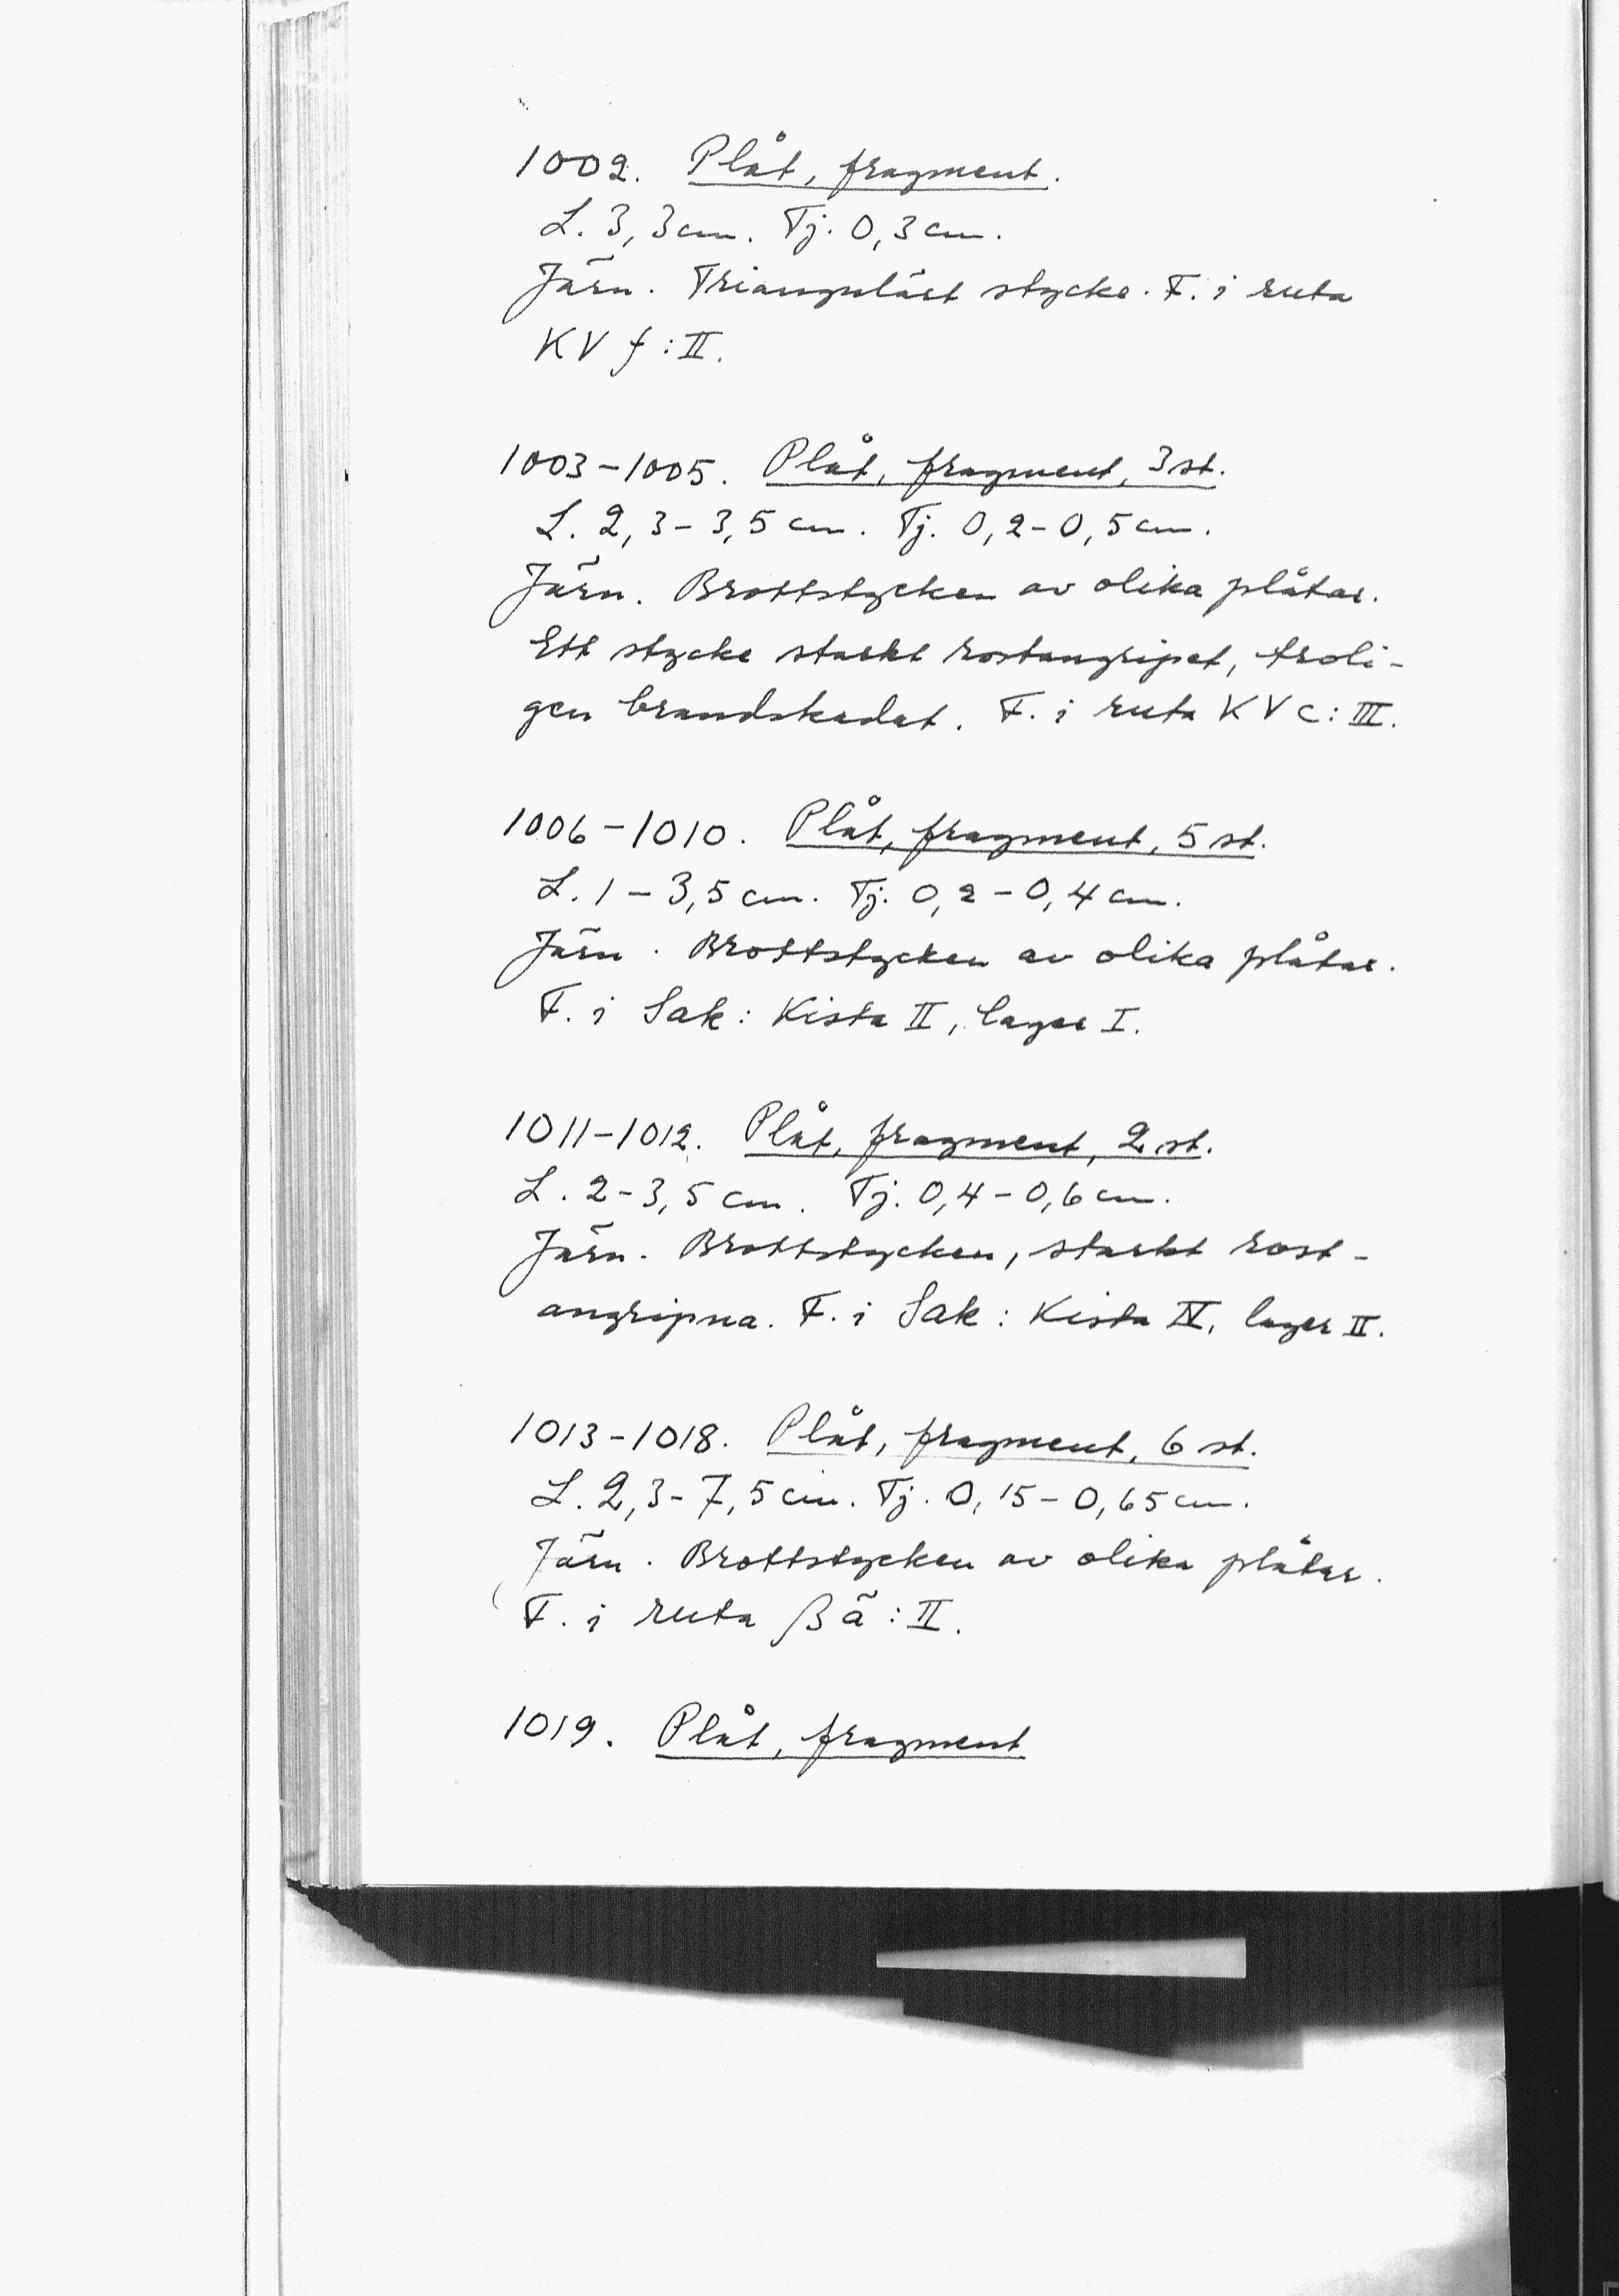 1002. Plåt, fragment.
L. 3,3 cm. Tj. 0,3 cm.
Järn. Triangulärt stycke. F. i ruta
KV f : II.
1003-1005. Plåt, fragment, 3 st.
L. 2,3-3,5 cm. Tj. 0,2-0,5 cm.
Järn. Brottstycken av olika plåtar.
Ett stycke starkt rostangripet, troli-
gen brandskadat. F. i ruta KV c : III.
1006-1010. Plåt, fragment, 5 st.
L. 1-3,5 cm. Tj. 0,2-0,4 cm.
Järn. Brottstycken av olika plåtar.
F. i Sak : Kista II, lager I.
1011-1012. Plåt, fragment, 2 st.
L. 2-3,5 cm. Tj. 0,4-0,6 cm.
Järn. Brottstycken, starkt rost-
angripna. F. i Sak : Kista IV, lager II.
1013-1018. Plåt, fragment, 6 st.
L. 2,3-7,5 cm. Tj. 0,15-0,65 cm.
Järn. Brottstycken av olika plåtar.
F. i ruta β ä : II.
1019. Plåt, fragment